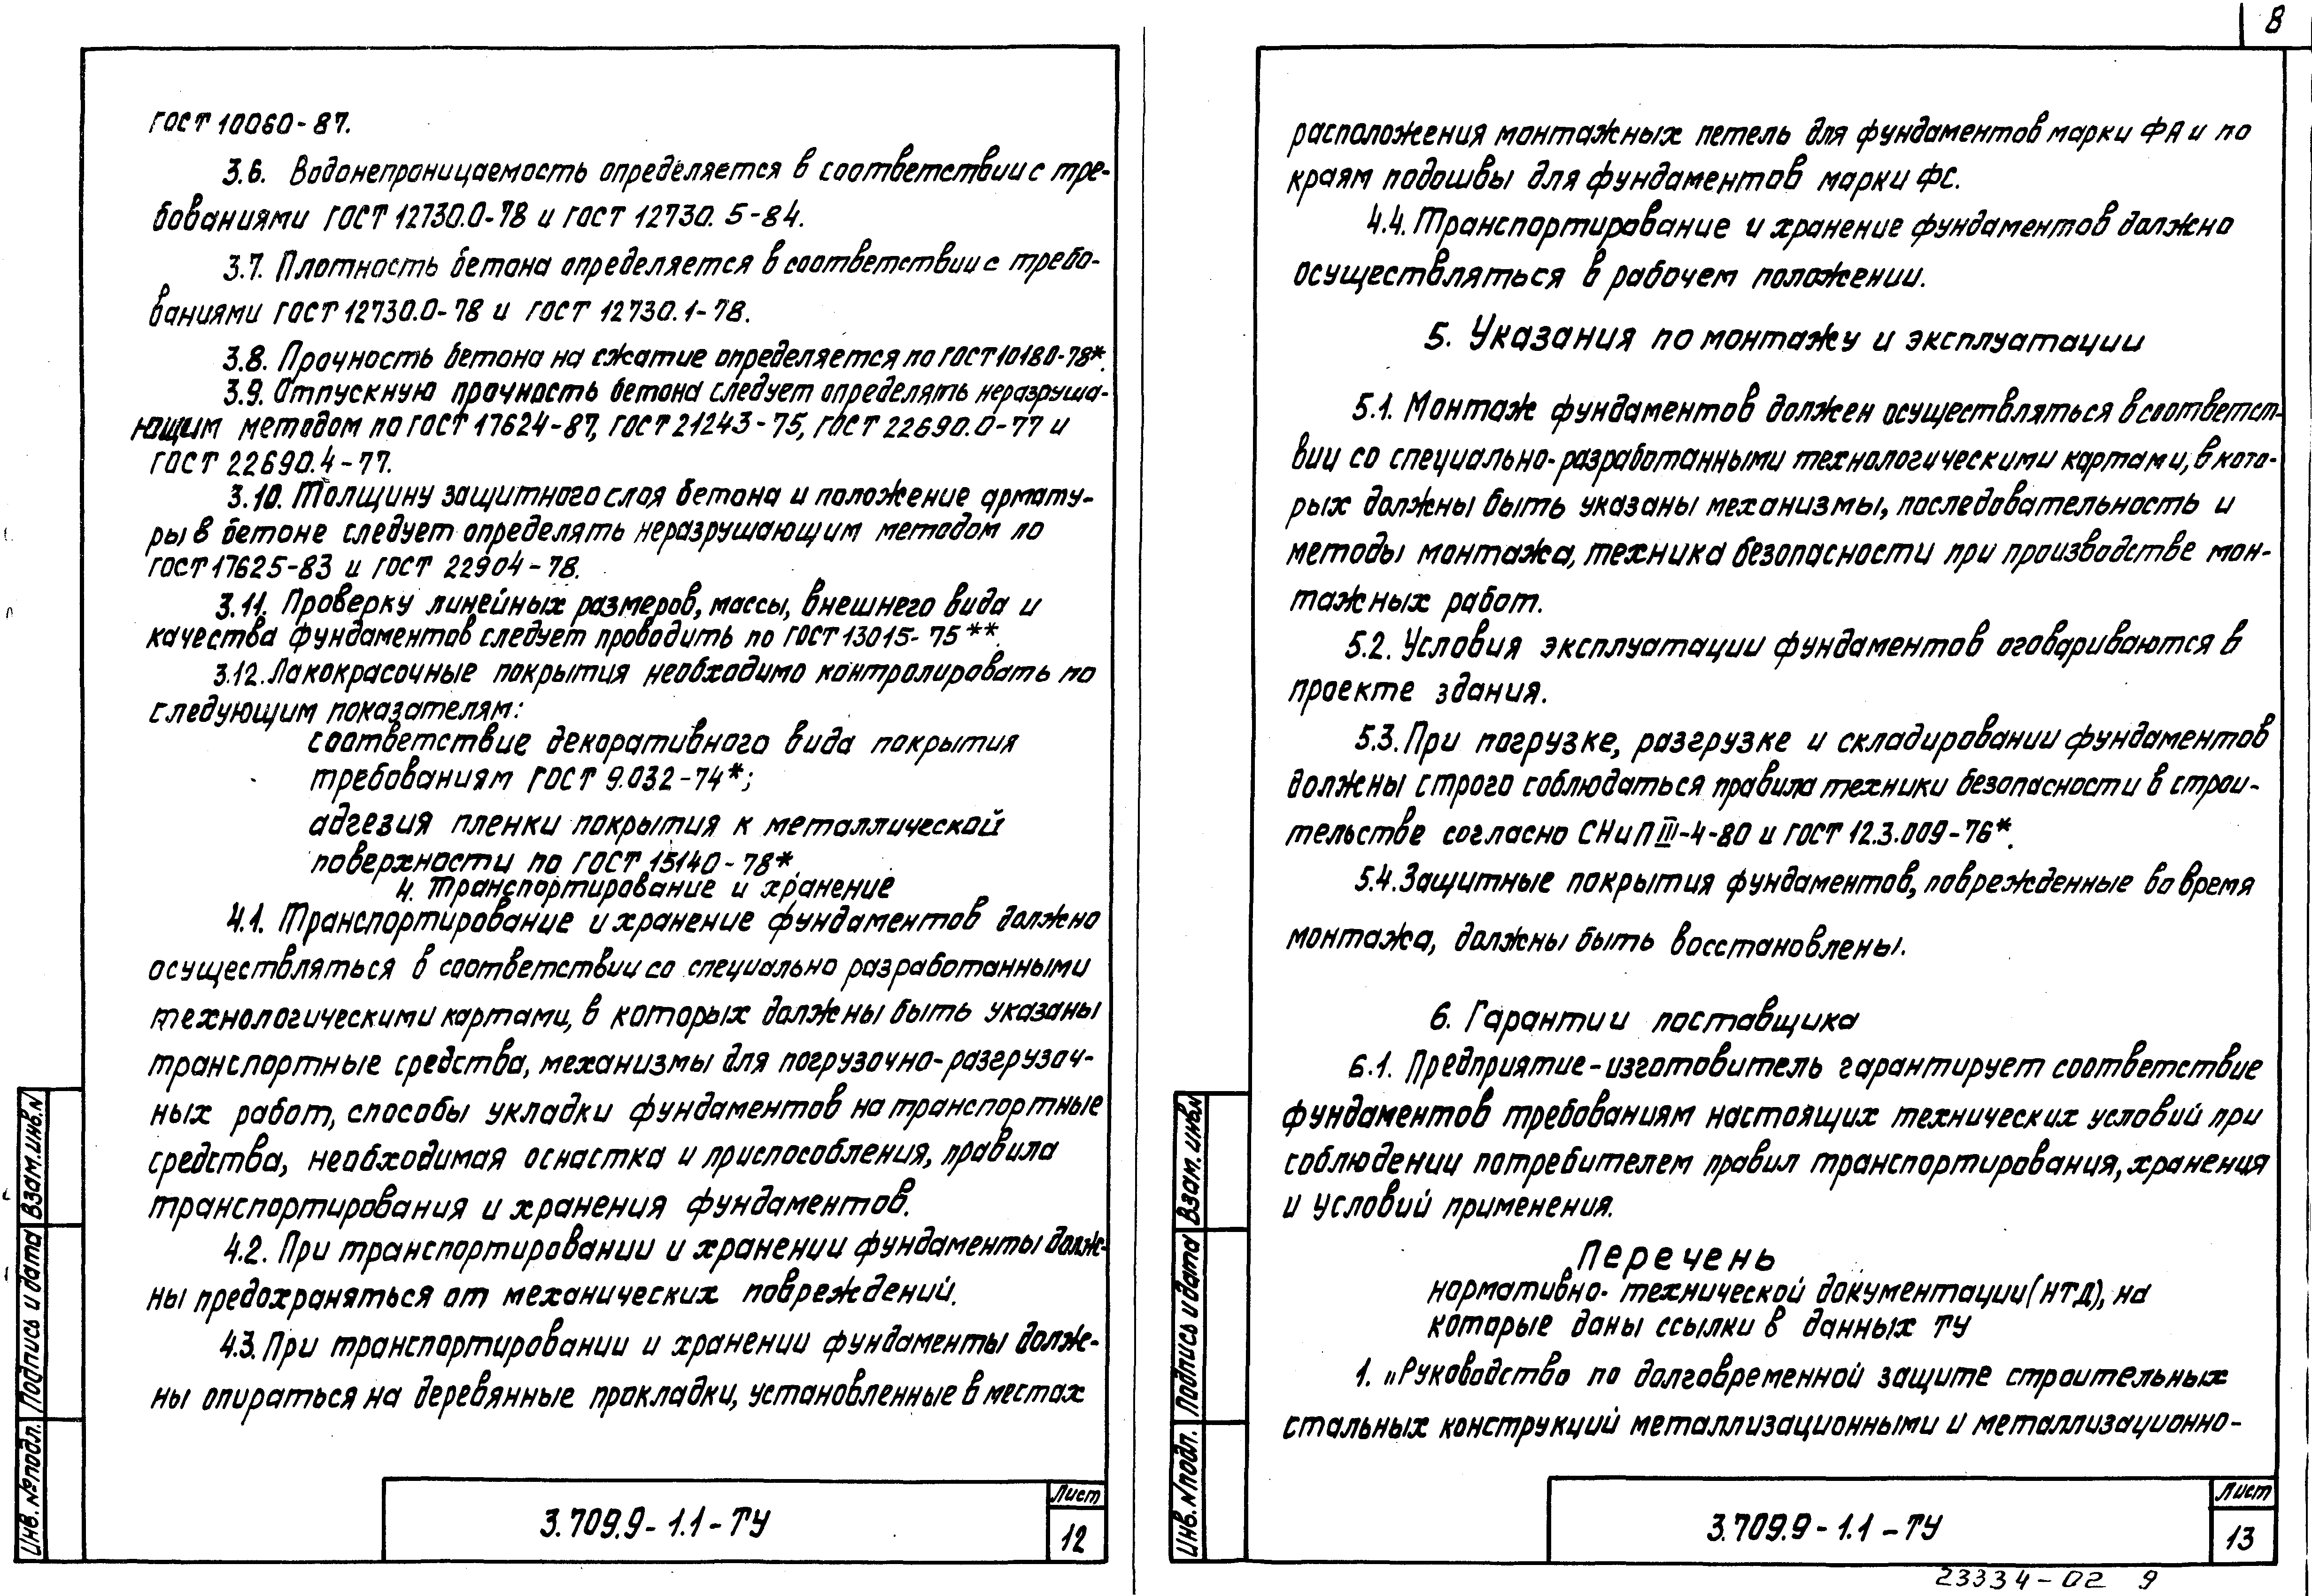 ГОСТ 10060-87.
3.6. Водонепроницаемость определяется в соответствии с тре-
бованиями ГОСТ 12730.0-78 и ГОСТ 12730.5-84.
3.7. Плотность бетона определяется в соответствии с требо-
ваниями ГОСТ 12730.0-78 и ГОСТ 12730.1-78.
3.8. Прочность бетона на сжатие определяется по ГОСТ 10180-78*.
3.9. Отпускную прочность бетона следует определять неразруша-
ющим методом по ГОСТ 17624-87, ГОСТ 21243-75, ГОСТ 22690.0-77 и
ГОСТ 22690.4-77.
3.10. Толщину защитного слоя бетона и положение армату-
ры в бетоне следует определять неразрушающим методом по
ГОСТ 17625-83 и ГОСТ 22904-78.
3.11. Проверку линейных размеров, массы, внешнего вида и
качества фундаментов следует проводить по ГОСТ 13015-75**.
3.12. Лакокрасочные покрытия необходимо контролировать по
следующим показателям:
соответствие декоративного вида покрытия
требованиям ГОСТ 9.032-74*;
адгезия пленки покрытия к металлической
поверхности по ГОСТ 15140-78*.
4. Транспортирование и хранение
4.1. Транспортирование и хранение фундаментов должно
осуществляться в соответствии со специально разработанными
технологическими картами, в которых должны быть указаны
транспортные средства, механизмы для погрузочно-разгрузоч-
ных работ, способы укладки фундаментов на транспортные
средства, необходимая оснастка и приспособления, правила
транспортирования и хранения фундаментов.
4.2. При транспортировании и хранении фундаменты долж-
ны предохраняться от механических повреждений.
4.3. При транспортировании и хранении фундаменты долж-
ны опираться на деревянные прокладки, установленные в местах
Инв. № подл. Подпись и дата Взам. инв. N
3.709.9-1.1-ТУ
Лист
12
8
расположения монтажных петель для фундаментов марки ФА и по
краям подошвы для фундаментов марки ФС.
4.4. Транспортирование и хранение фундаментов должно
осуществляться в рабочем положении.
5. Указания по монтажу и эксплуатации
5.1. Монтаж фундаментов должен осуществляться в соответст-
вии со специально-разработанными технологическими картами, в кото-
рых должны быть указаны механизмы, последовательность и
методы монтажа, техника безопасности при производстве мон-
тажных работ.
5.2. Условия эксплуатации фундаментов оговариваются в
проекте здания.
5.3. При погрузке, разгрузке и складировании фундаментов
должны строго соблюдаться правила техники безопасности в строи-
тельстве согласно СНиП III-4-80 и ГОСТ 12.3.009-76*.
5.4. Защитные покрытия фундаментов, поврежденные во время
монтажа, должны быть восстановлены.
6. Гарантии поставщика
6.1. Предприятие-изготовитель гарантирует соответствие
фундаментов требованиям настоящих технических условий при
соблюдении потребителем правил транспортирования, хранения
и условий применения.
Перечень
нормативно-технической документации (НТД), на
которые даны ссылки в данных ТУ
1. „Руководство по долговременной защите строительных
стальных конструкций металлизационными и металлизационно-
Инв. N подл. Подпись и дата Взам. инв. N
3.709.9-1.1-ТУ
Лист
13
23334-02 9